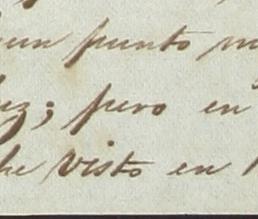 un punto
pero en
he visto en